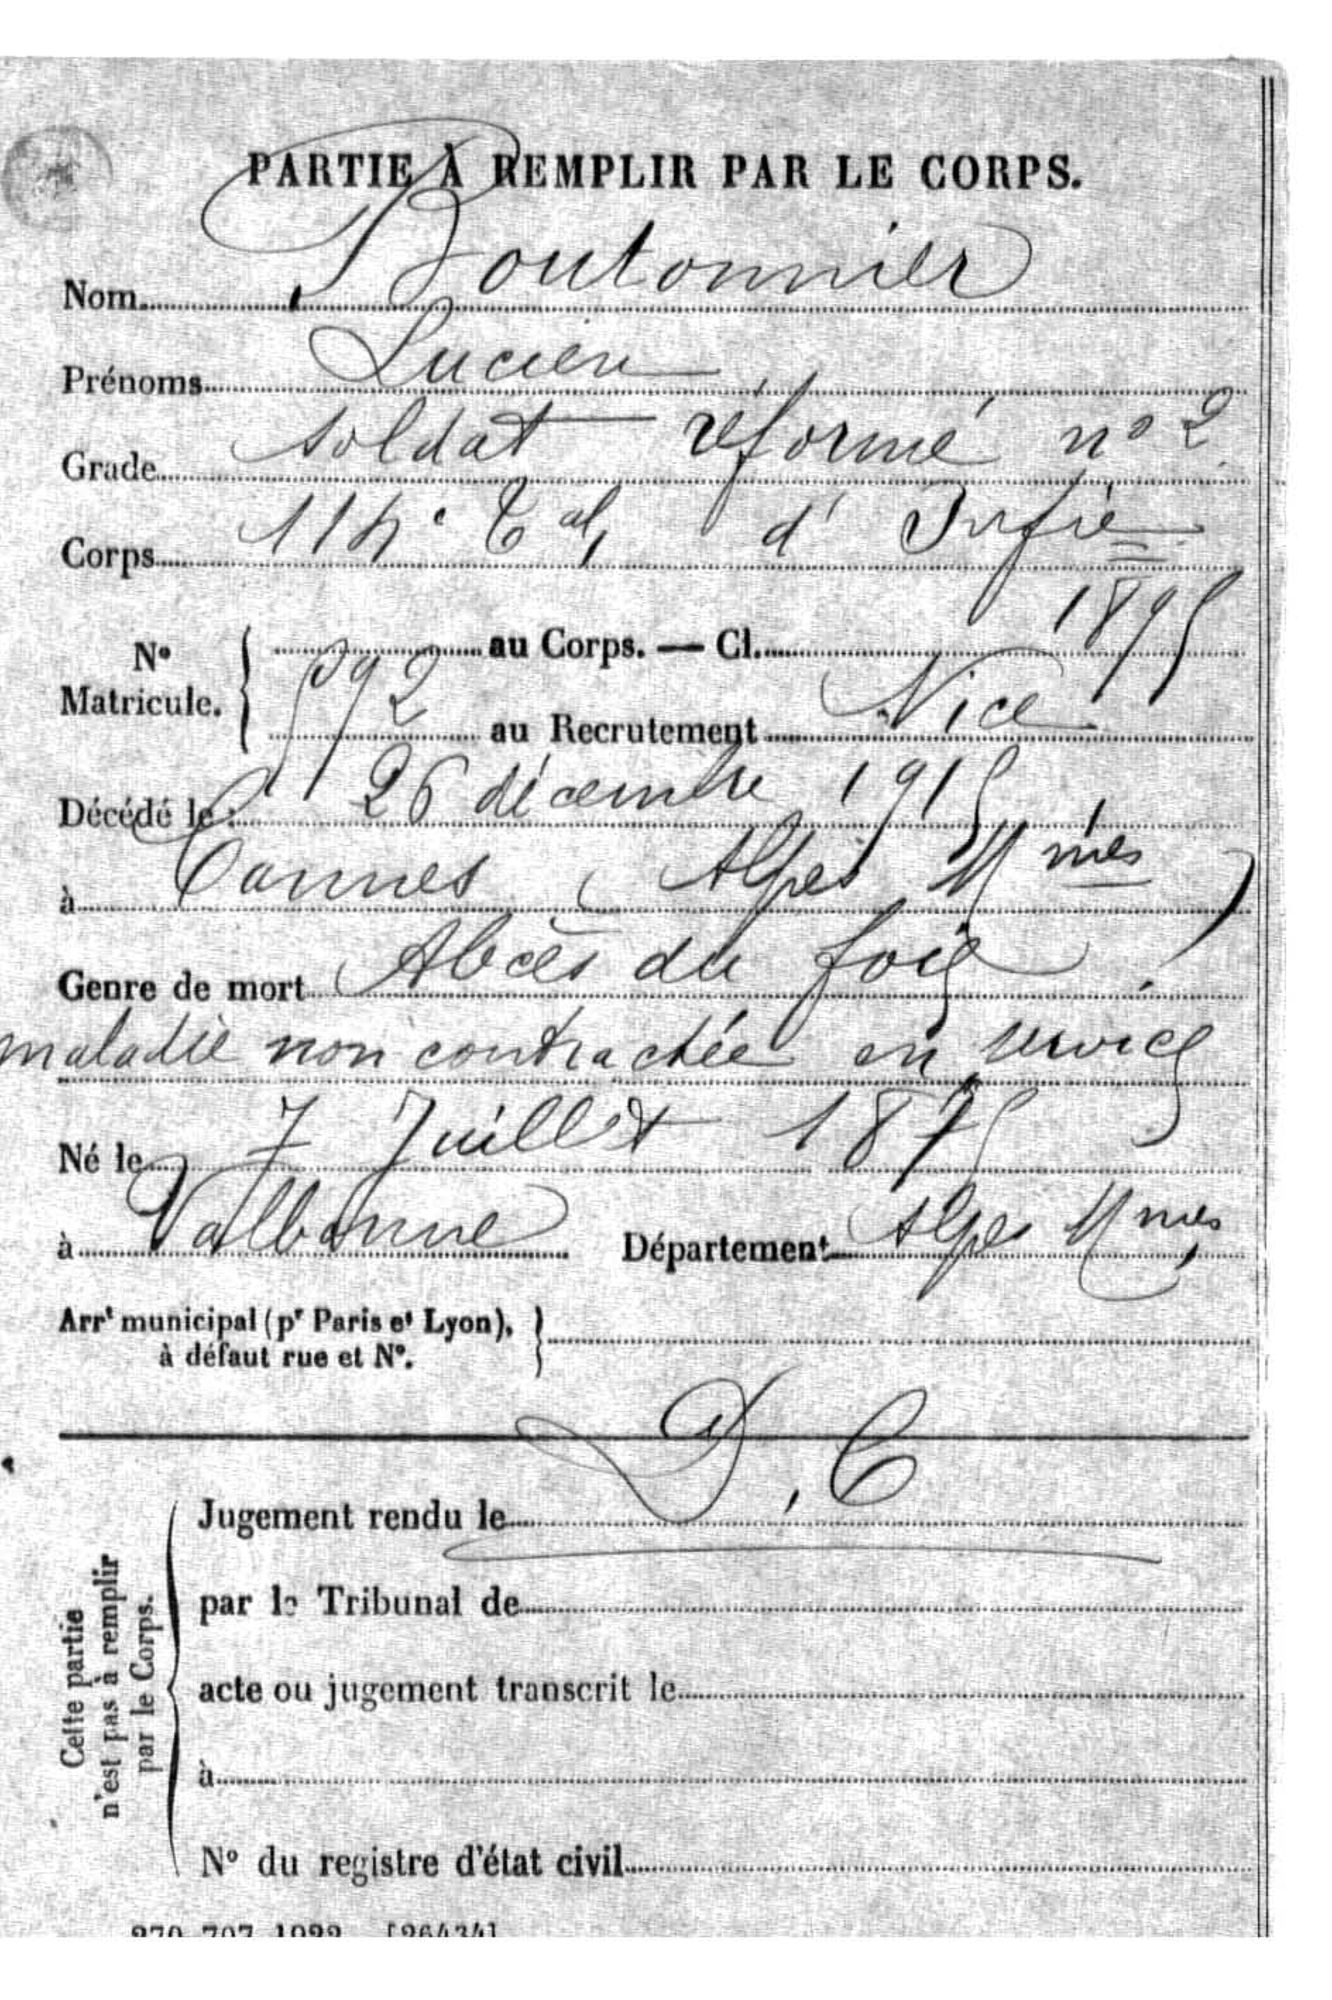 PARTIE À REMPLIR PAR LE CORPS.
Nom Boutonnier
Prénoms Lucien
Grade soldat réformé n° 2
Corps 114e Tal d'Infie
N° Matricule. { au Corps. — Cl. 1895
592 au Recrutement Nice
Décédé le : 26 décembre 1915
à Cannes (Alpes Mmes)
Genre de mort Abcès du foie
maladie non contractée en service
Né le 7 Juillet 1875
à Valbonne Département Alpes Mmes
Arrt municipal (pr Paris et Lyon), }
à défaut rue et N°.
D, C
Jugement rendu le
par le Tribunal de
acte ou jugement transcrit le
à
N° du registre d'état civil
Cette partie
n'est pas à remplir
par le Corps.
270-707-1922. [26434]